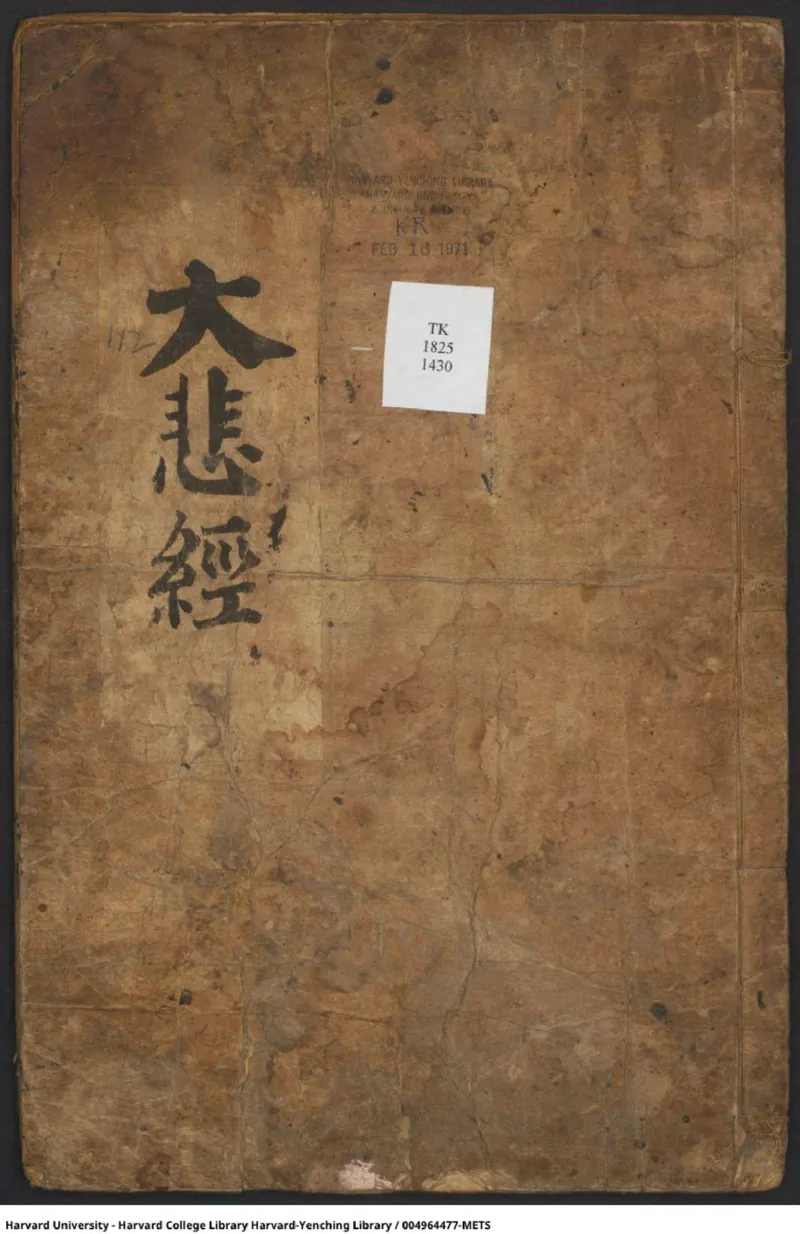 HARVARD-YENCHING LIBRARY
HARVARD UNIVERSITY
KR
FEB 16 1971
TK
1825
1430
112
大悲經
Harvard University - Harvard College Library Harvard-Yenching Library / 004964477-METS